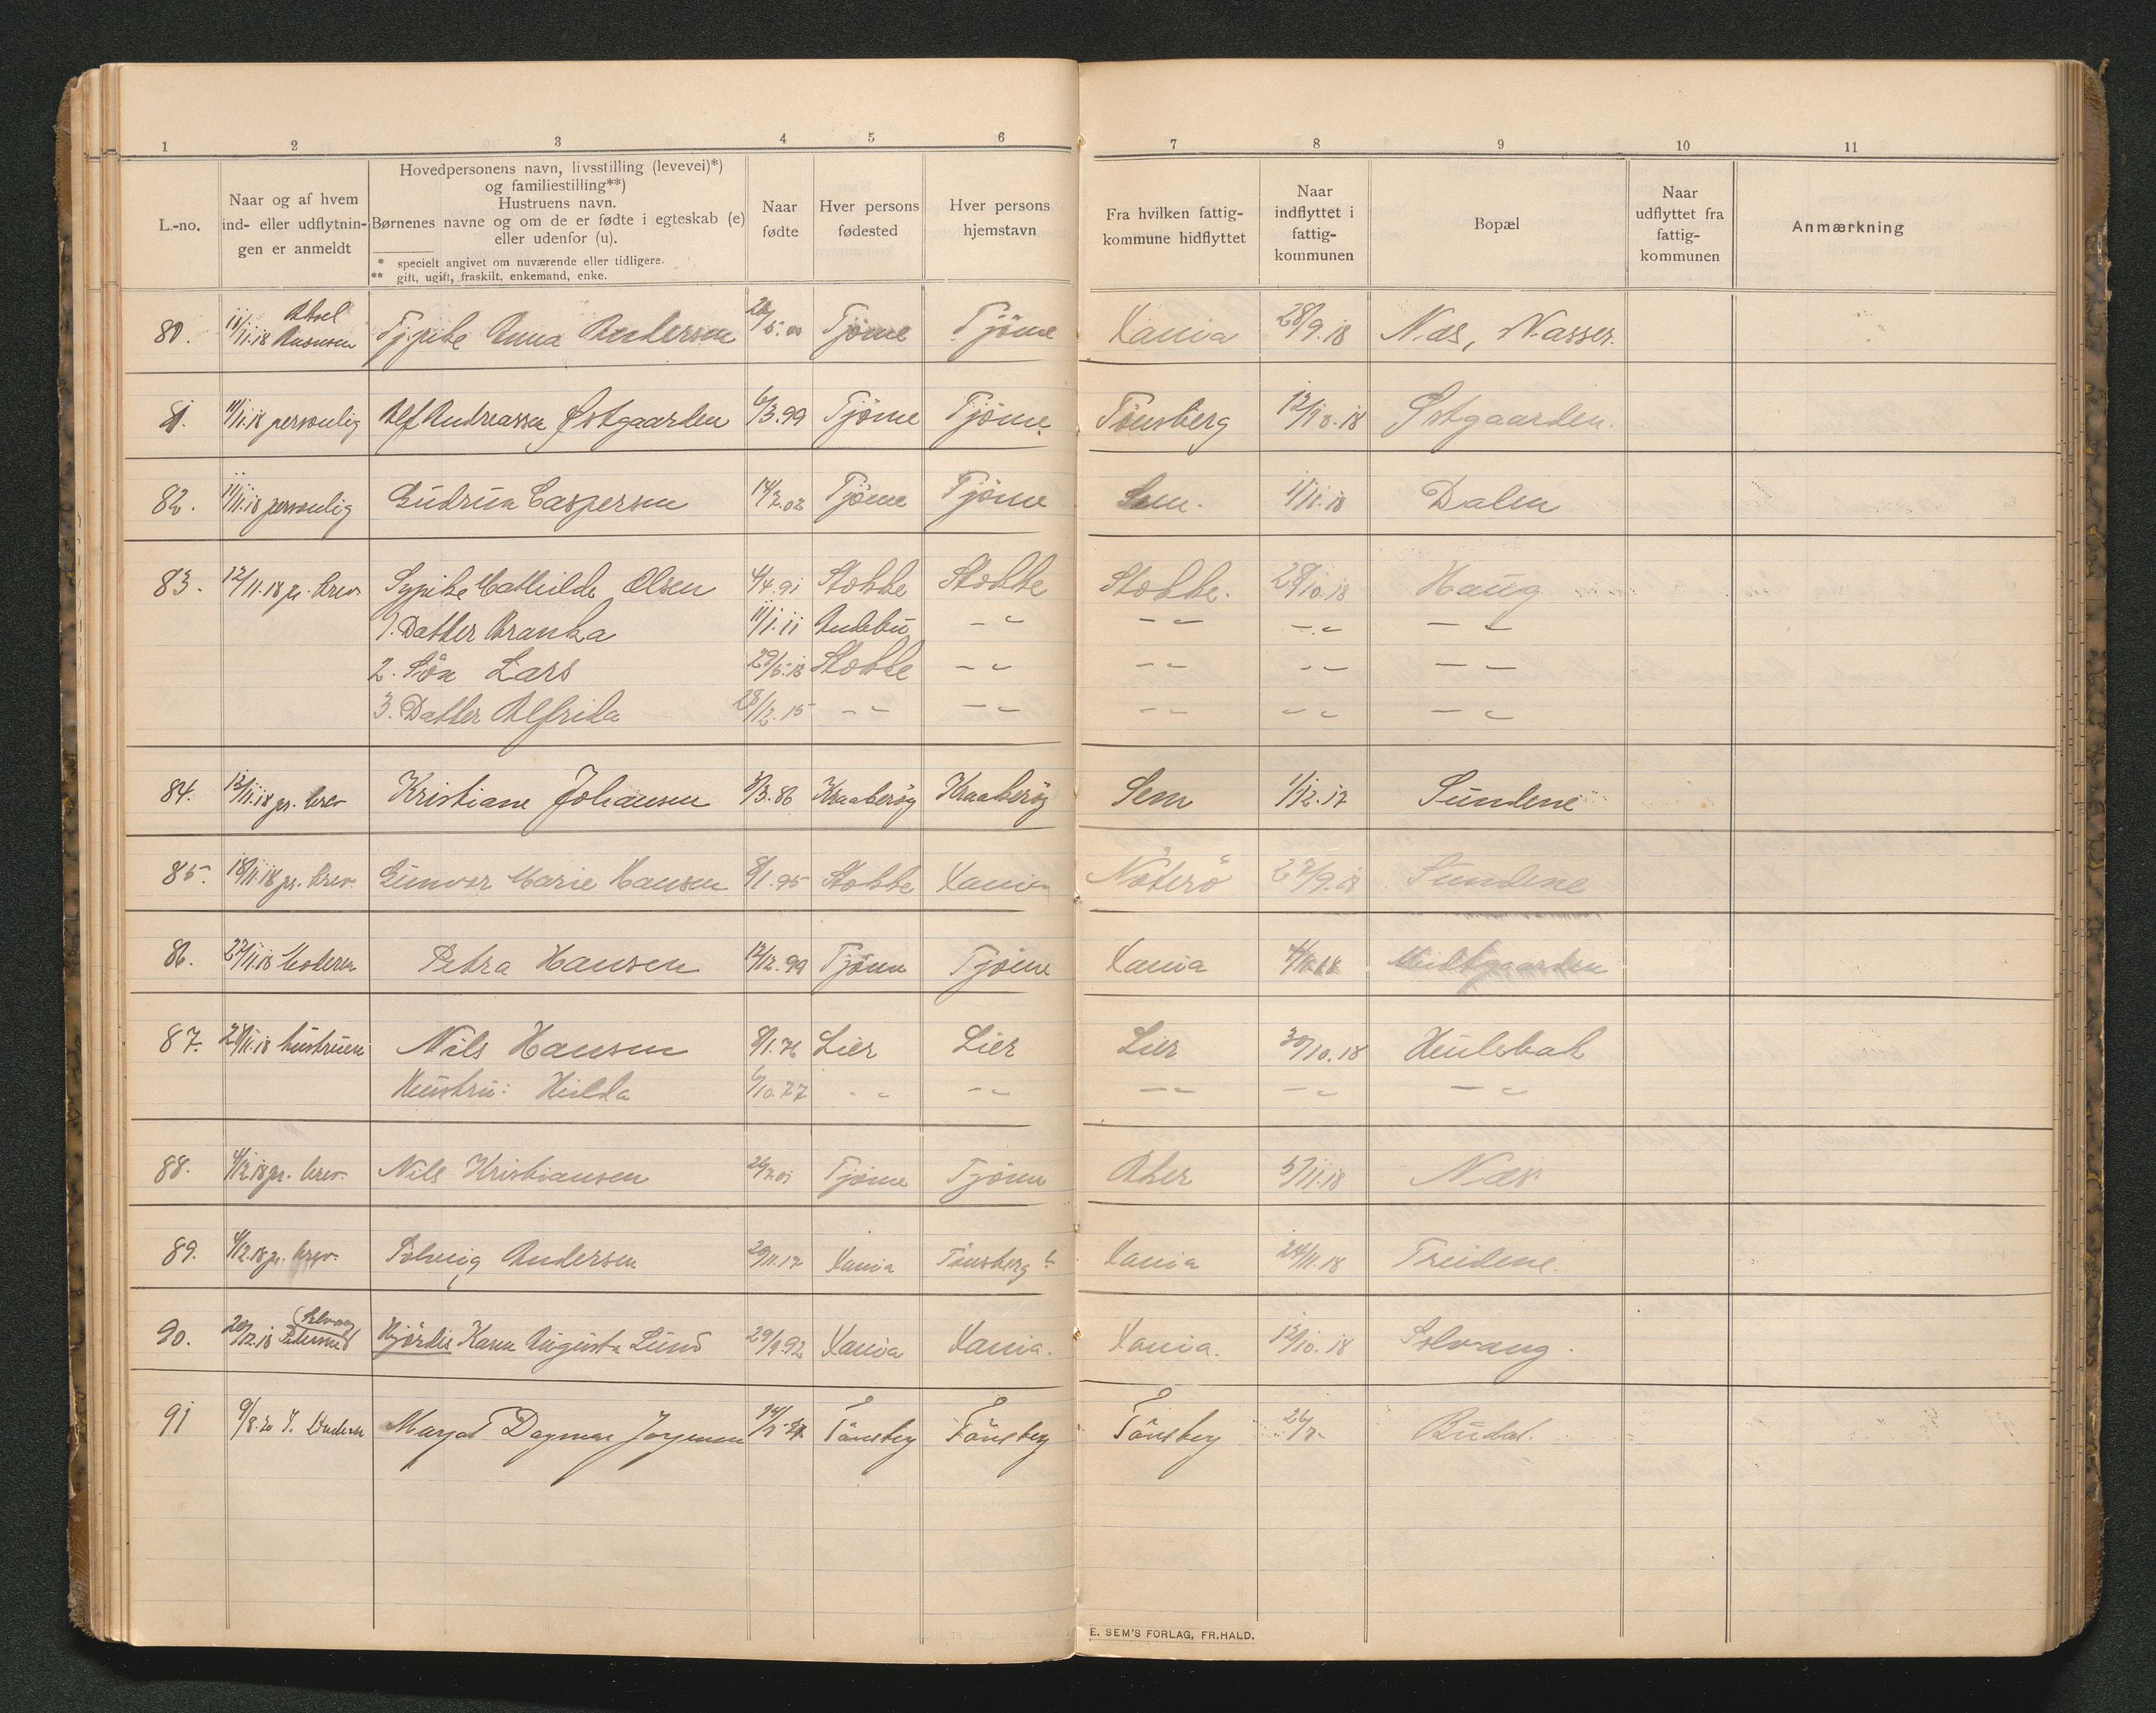 1 2 3 4 5 6 7 8 9 10 11
L.-no.
Naar og af hvem
ind- eller udflytnin-
gen er anmeldt
Hovedpersonens navn, livsstilling (levevei)*)
og familiestilling**)
Hustruens navn.
Børnenes navne og om de er fødte i egteskab (e)
eller udenfor (u).
* specielt angivet om nuværende eller tidligere.
** gift, ugift, fraskilt, enkemand, enke.
Naar
fødte
Hver persons
fødested
Hver persons
hjemstavn
Fra hvilken fattig-
kommune hidflyttet
Naar
indflyttet i
fattig-
kommunen
Bopæl
Naar
udflyttet fra
fattig-
kommunen
Anmærkning
80. Anna Andersen Tjöme Tjöme Xania 28/9.18 Næs,
81. 11/11.18 personlig Alf Andreassen Østgaarden 6/3.99 Tjöme Tjöme Tönsberg 12/10.18 Østgaarden.
82. 11/11.18 personlig Gudrun Caspersen Tjöme Tjöme Sem. 11/11.18 Dalen
83. 12/11.18 pr. brev Mathilde Olsen 4/4.91 Stokke Stokke Stokke. 28/10.18 Haug
1. Datter Branka 11/1.11 Andebu - - - - - - - -
2. Sön Lars Stokke - - - - - - - -
3. Datter Alfrida 28/12.15 - - - - - - - - - -
84. 12/11.18 pr. brev Kristiane Johansen Kraaberög Kraaberög Sem 1/12.17 Sundene
85. 18/11.18 pr. brev. Gunvor Marie Hansen 8/1.95 Stokke Xania Nöterö 27/9.18 Sundene
86. 27/11.18 Moderen Petra Hansen 12/12.99 Tjöme Tjöme Xania Midtgaarden
87. 28/11.18 hustruen Nils Hansen 8/1.76 Lier Lier Lier 30/10.18 Hulebak
Hustru: Hilda 6/10.77 - - - - - - - - - -
88. 4/12.18 pr. brev. Nils Kristiansen Tjöme Tjöme Aker Næs
89. 4/12.18 pr. brev. Solveig Andersen 20/11.17 Xania Tönsberg Xania 24/11.18 Treidene.
90. 20/12.18 Hjördis Karen Augusta Lund Xania Xania. Xania. 12/10.18 Solvang.
91 9/8.20 Margot Dagmar Tönsberg Tönsberg Tönsberg Budal.
E. SEM'S FORLAG, FR.HALD.